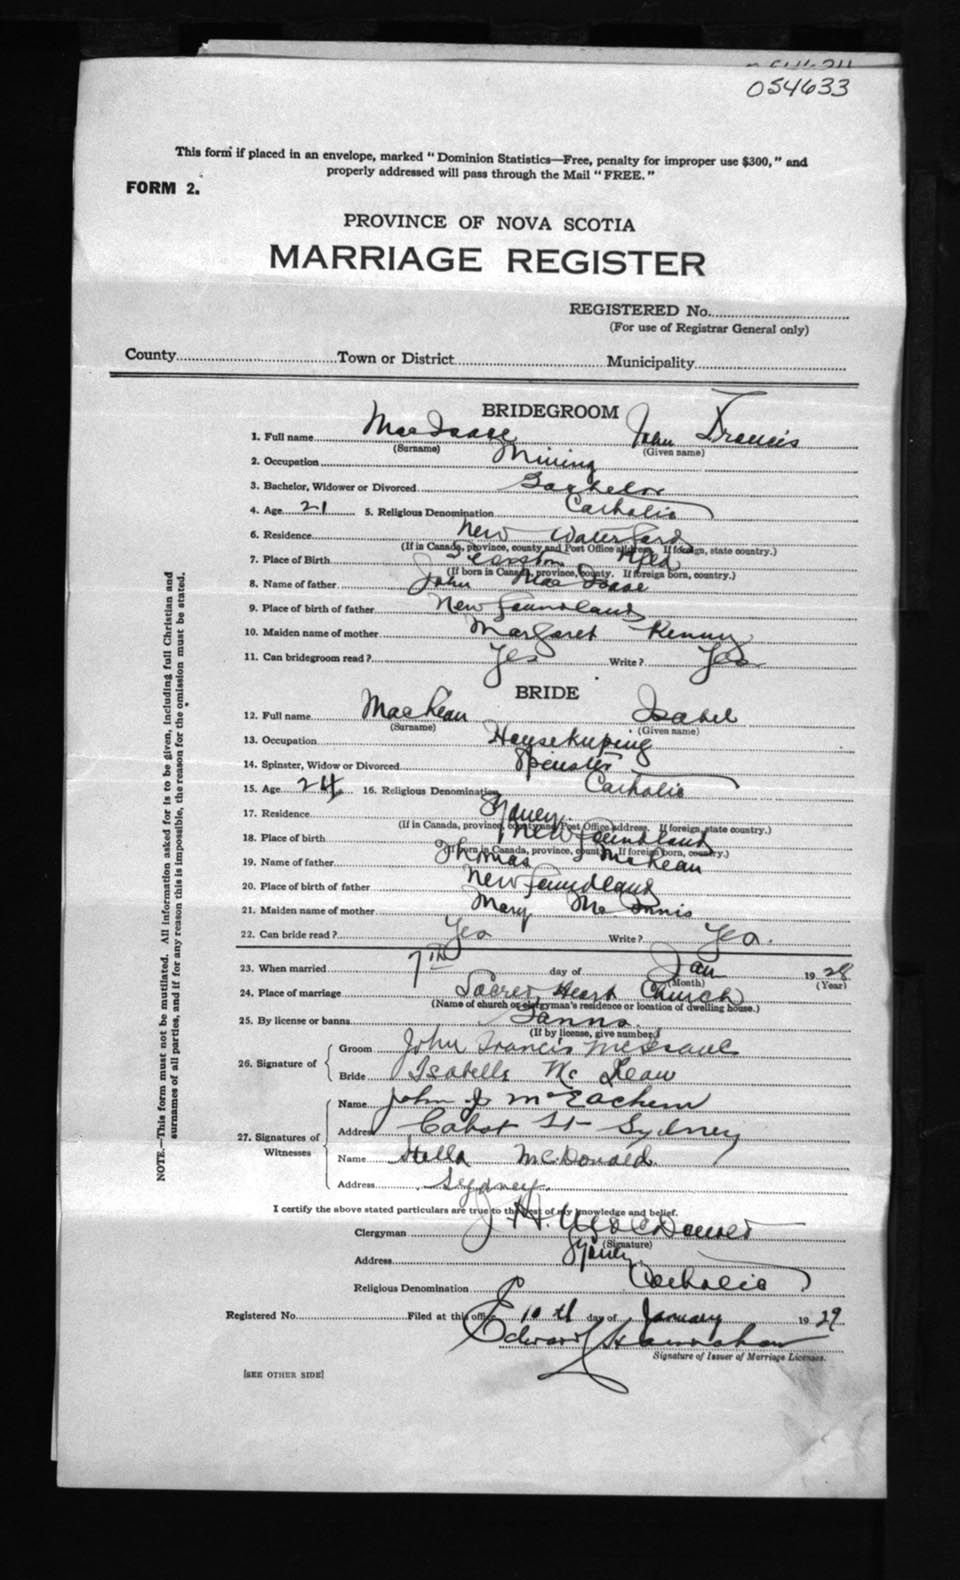 054633
This form if placed in an envelope, marked "Dominion Statistics—Free, penalty for improper use $300," and
properly addressed will pass through the Mail "FREE."
FORM 2.
PROVINCE OF NOVA SCOTIA
MARRIAGE REGISTER
REGISTERED No.
(For use of Registrar General only)
County Town or District Municipality
BRIDEGROOM
1. Full name Mac Isaac John Francis
(Surname) (Given name)
2. Occupation Mining
3. Bachelor, Widower or Divorced Bachelor
4. Age 21 5. Religious Denomination Catholic
6. Residence New Waterford
(If in Canada, province, county and Post Office address. If foreign, state country.)
7. Place of Birth Nfld
(If born in Canada, province, county. If foreign born, country.)
8. Name of father John Mac Isaac
9. Place of birth of father New Foundland
10. Maiden name of mother Margaret Kenny
11. Can bridegroom read? Yes Write? Yes
BRIDE
12. Full name Mac Lean Isabel
(Surname) (Given name)
13. Occupation Housekeeping
14. Spinster, Widow or Divorced Spinster
15. Age 24 16. Religious Denomination Catholic
17. Residence Sydney
(If in Canada, province, county and Post Office address. If foreign, state country.)
18. Place of birth New Foundland
(If born in Canada, province, county. If foreign born, country.)
19. Name of father Thomas McLean
20. Place of birth of father New Foundland
21. Maiden name of mother Mary Mc Innis
22. Can bride read? Yes Write? Yes.
23. When married 7TH day of Jan 1928
(Month) (Year)
24. Place of marriage Sacred Heart Church
(Name of church or clergyman's residence or location of dwelling house.)
25. By license or banns Banns.
(If by license, give number.)
26. Signature of Groom John Francis McIsaac
Bride Isabelle Mc Lean
27. Signatures of Witnesses Name John J McEachern
Address Cabot St Sydney
Name Stella McDonald.
Address Sydney.
I certify the above stated particulars are true to the best of my knowledge and belief.
Clergyman J. H. MacDonald
(Signature)
Address Sydney
Religious Denomination Catholic
Registered No. Filed at this office 10th day of January 1929
Edward
Signature of Issuer of Marriage Licenses.
[SEE OTHER SIDE]
NOTE.—This form must not be mutilated. All information asked for is to be given, including full Christian and
surnames of all parties, and if for any reason this is impossible, the reason for the omission must be stated.